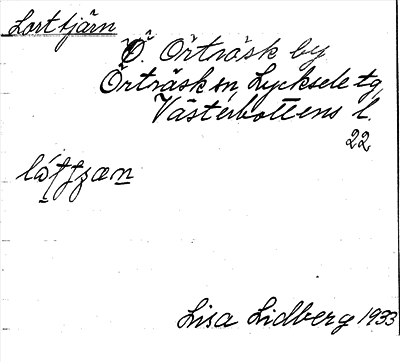 Lorttjärn
Ö. Örträsk by
Örträsk sn, Lycksele tg,
Västerbottens l.
22
Lisa Lidberg 1933